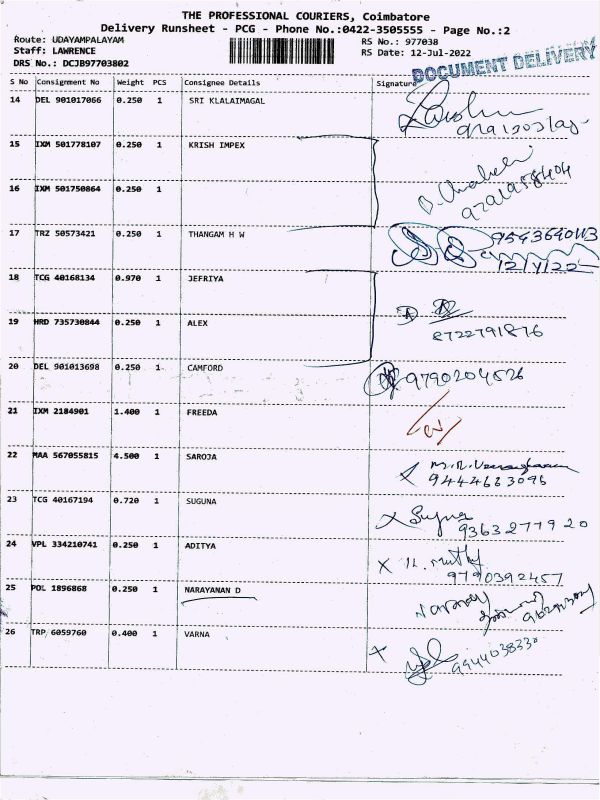 THE PROFESSIONAL COURIERS, Coimbatore
Delivery Runsheet - PCG - Phone No.:0422-3505555 - Page No.:2
Route: UDAYAMPALAYAM
RS No.: 977038
Staff: LAWRENCE
RS Date: 12-Jul-2022
DRS No.: DCJB97703802
DOCUMENT DELIVERY
S No Consignment No Weight PCS Consignee Details Signature
14 DEL 901017066 0.250 1 SRI KLALAIMAGAL
15 IXM 501778107 0.250 1 KRISH IMPEX
16 IXM 501750864 0.250 1
17 TRZ 50573421 0.250 1 THANGAM H W
18 TCG 40168134 0.970 1 JEFRIYA
19 HRD 735730844 0.250 1 ALEX 8722791876
20 DEL 901013698 0.250 1 CAMFORD 9790204526
21 IXM 2184901 1.400 1 FREEDA
22 MAA 567055815 4.500 1 SAROJA 9444663096
23 TCG 40167194 0.720 1 SUGUNA Suguna 9363277920
24 VPL 334210741 0.250 1 ADITYA 9790392457
25 POL 1896868 0.250 1 NARAYANAN D
26 TRP 6059760 0.400 1 VARNA